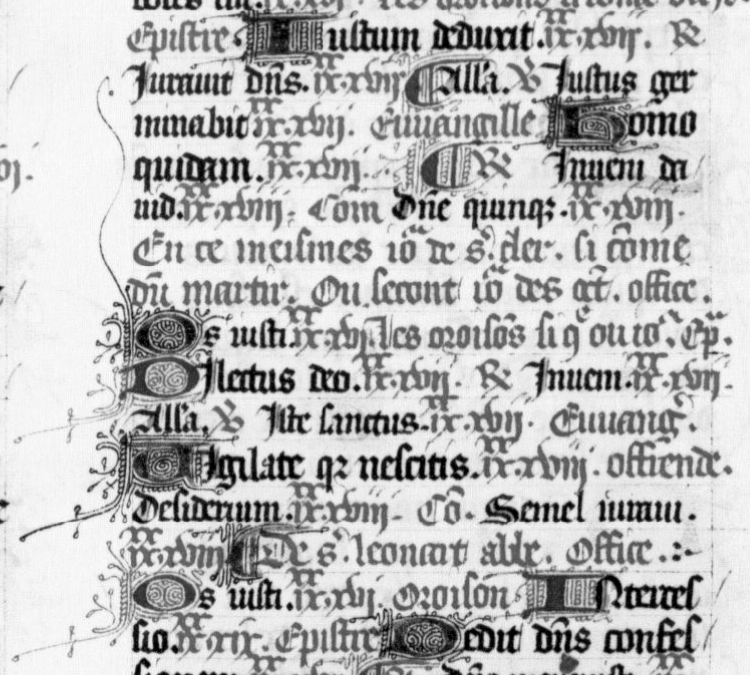 Epistre. Iustum deduxit. ix.xx xvij. R
Jurauit dns. ix.xx xvij Alla. V Justus ger
minabit ix.xx xvij. Euuangille Homo
quidam. ix.xx xvij. R Inueni da
uid. ix.xx xviij. Com Dne quinqz. ix.xx xviij.
En ce meismes io de s. cler. si come
du martir. Ou secont io des oct. office.
Os iusti. ix.xx xvj. les oroisos si q ou io. Ep.
Dilectus deo. ix.xx xvij. R Inueni. ix.xx xvij.
Alla. V Iste sanctus. ix.xx xvij. Euuang.
Vigilate qz nescitis. ix.xx xviij. offrende.
Desiderium. ix.xx xviij. Co. Semel iuraui.
ix.xx xviij De s. leonart abbe. Office.
Os iusti. ix.xx xvj. oroison Interces
sio. ix.xx xix. Epistre Dedit dns confes